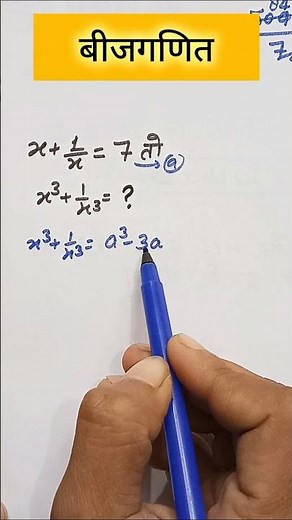 बीजगणित
x + 1/x = 7 तो
→ a
x³ + 1/x³ = ?
x³ + 1/x³ = a³ - 3a